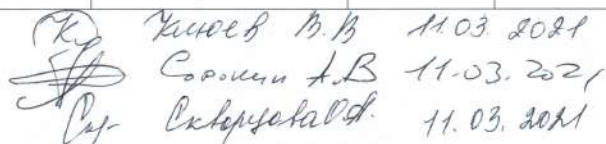 Клюев В.В 11.03.2021
Сорокин А.В 11.03.202,
Скворцова О.А. 11.03.2021